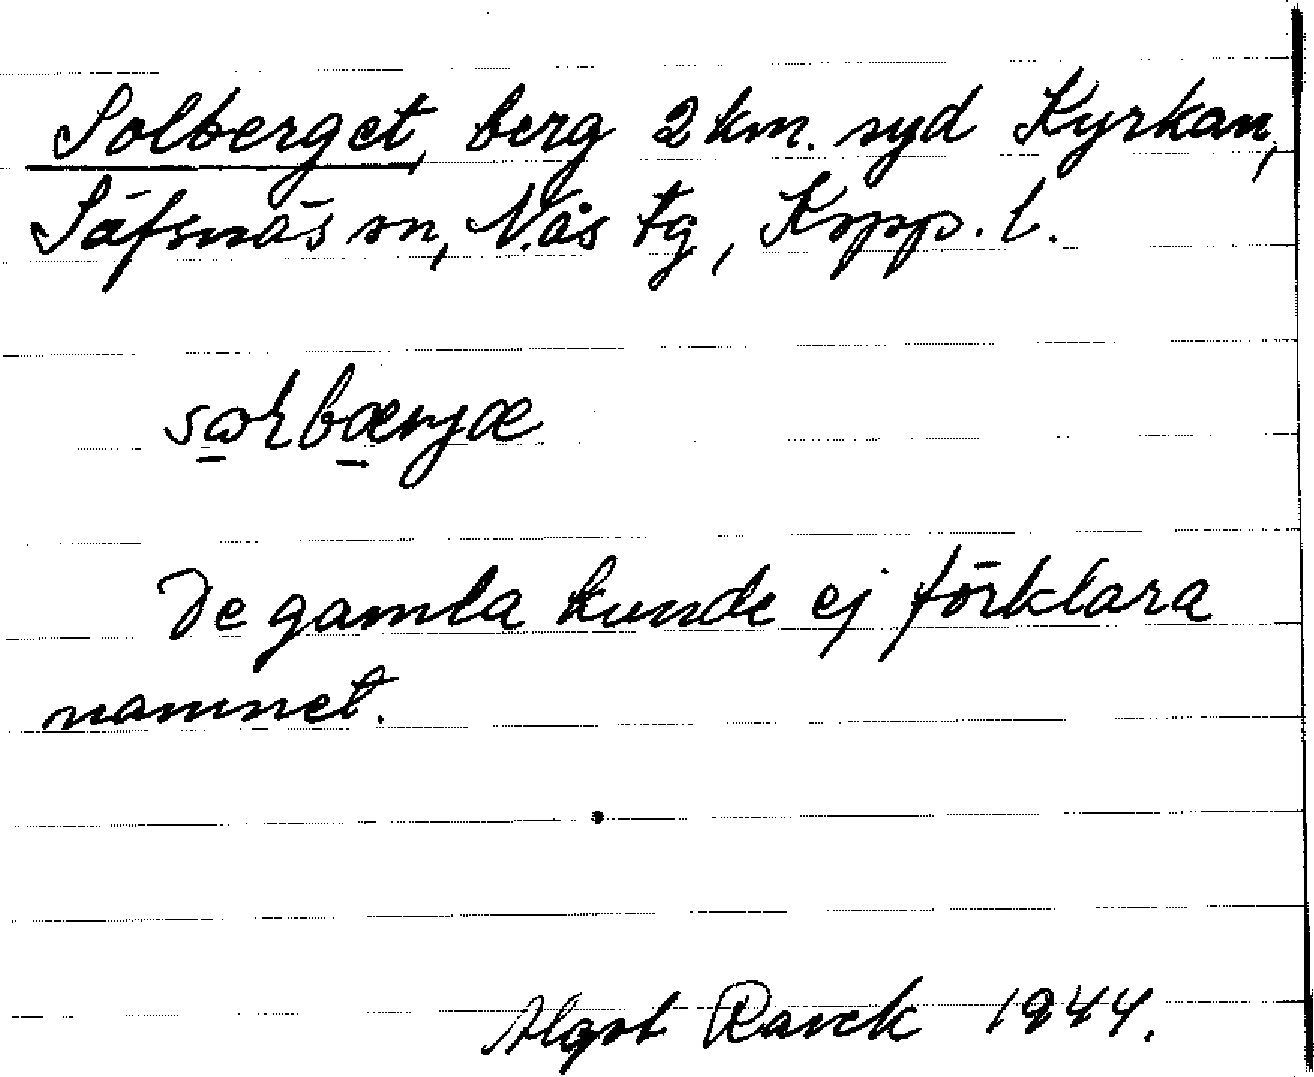 Solberget, berg 2 km. syd Kyrkan,
Säfsnäs sn, Nås tg, Kopp. l.
De gamla kunde ej förklara
namnet.
Algot Ranck 1944.